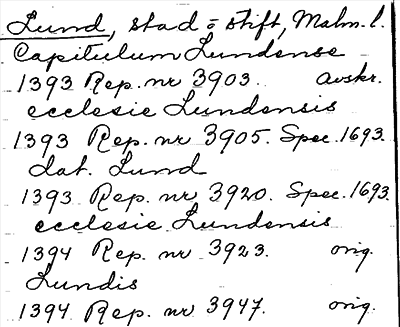 Lund, stad = stift, Malm. l.
Capitulum Lundense
1393 Rep. nr 3903. avskr.
ecclesie Lundensis
1393 Rep. nr 3905. Spec. 1693.
dat. Lund
1393 Rep. nr 3920. Spec. 1693.
ecclesie Lundensis
1394 Rep. nr 3923. orig.
Lundis
1394 Rep. nr 3947. orig.